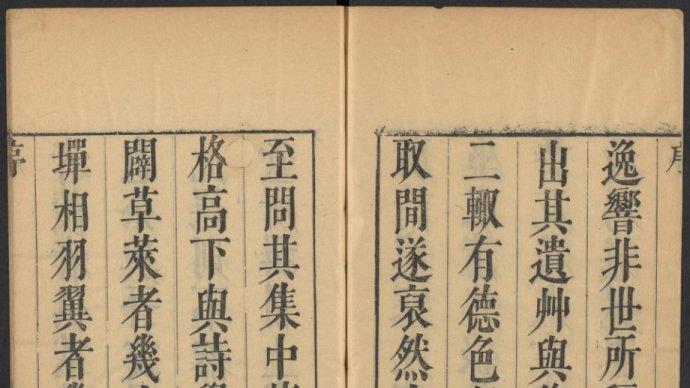 序
逸響非世所
出其遺艸與
二輙有德色
取間遂裒然
至問其集中
格高下與詩
闢草萊者幾
墠相羽翼者
序